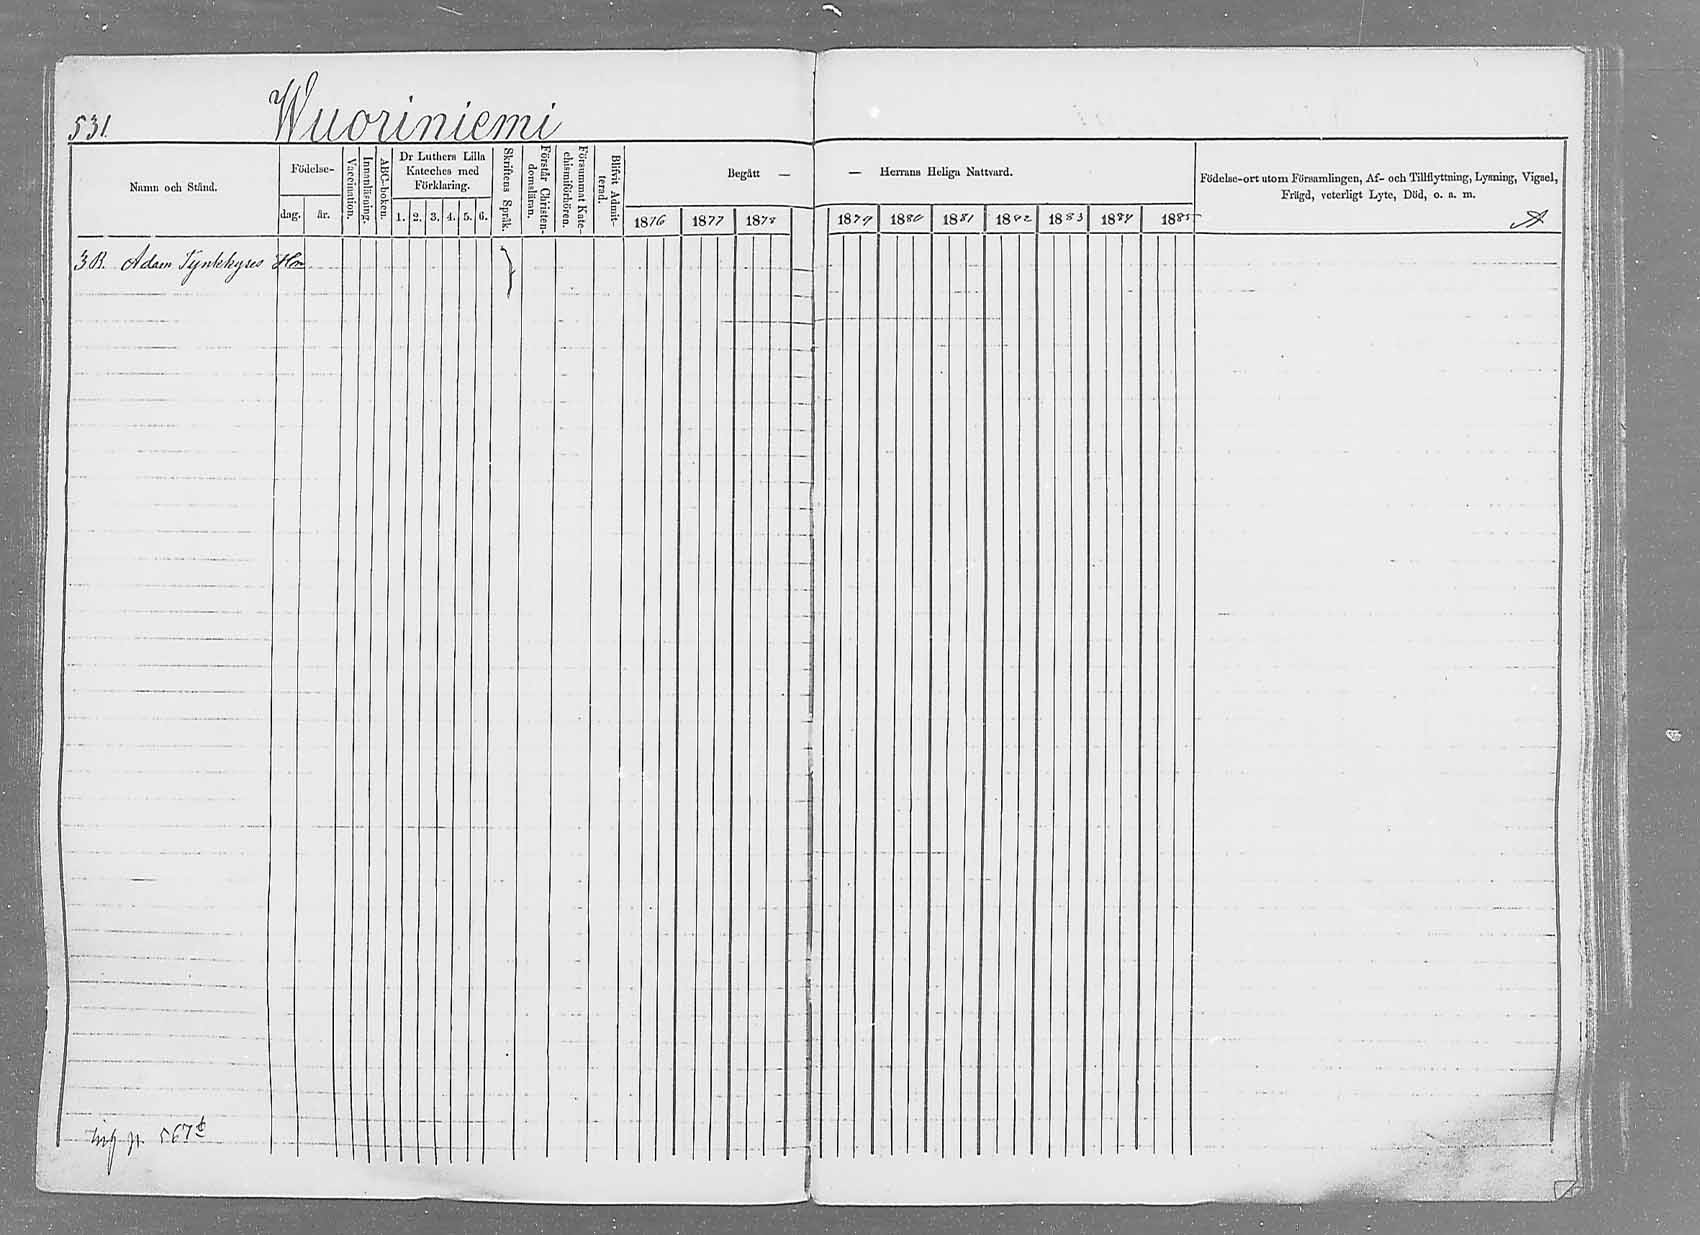 531.
Wuoriniemi
Namn och Stånd.
Födelse-
dag.
år.
Vaccination.
Innanläsning.
ABC-boken.
Dr Luthers Lilla
Kateches med
Förklaring.
1. 2. 3. 4. 5. 6.
Skriftens Språk.
Förstår Christen-
domsläran.
Försummat Kate-
chismiförhören.
Blifvit Admit-
terad.
Begått — — Herrans Heliga Nattvard.
1876 1877 1878 1879 1880 1881 1882 1883 1884 1885
Födelse-ort utom Församlingen, Af- och Tillflyttning, Lysning, Vigsel,
Frägd, veterligt Lyte, Död, o. a. m.
3 R. Adam Tynkkyses Hm
p. 567